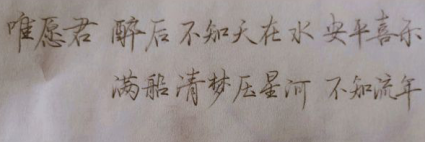 唯愿君 醉后不知天在水 安平喜乐
满船清梦压星河 不知流年